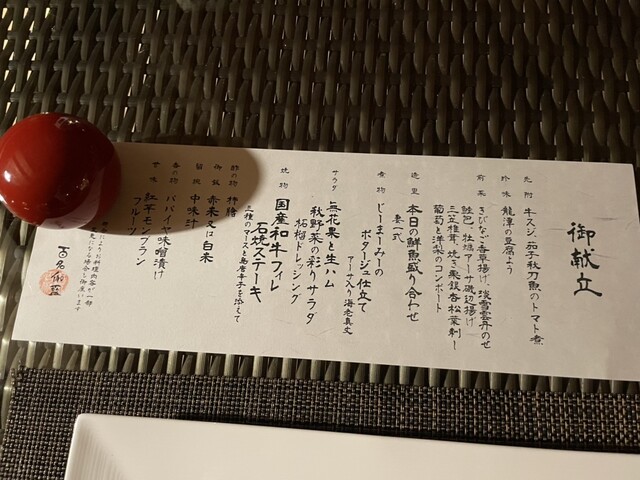 御献立
先附 牛スジ、茄子秋刀魚のトマト煮
珍味 龍潭の豆腐よう
前菜 きびなご香草揚げ、淡雪雲丹のせ
鮭芭、牡蠣アーサ磯辺揚げ
三立椎茸、焼き栗銀杏松葉刺し
葡萄と洋梨のコンポート
造里 本日の鮮魚盛り合わせ
妻一式
煮物 じーまーみーの
ポタージュ仕立て
アーサ入り海老真丈
サラダ 無花果と生ハム
秋野菜の彩りサラダ
柘榴ドレッシング
焼物 国産和牛フィレ
石焼ステーキ
三種のソースと島唐辛子を添えて
酢の物 柿膾
御飯 赤米又は白米
留椀 中味汁
香の物 パパイヤ味噌漬け
甘味 紅芋モンブラン
フルーツ
料理内容が一部
変更になる場合も御座います
百名伽藍